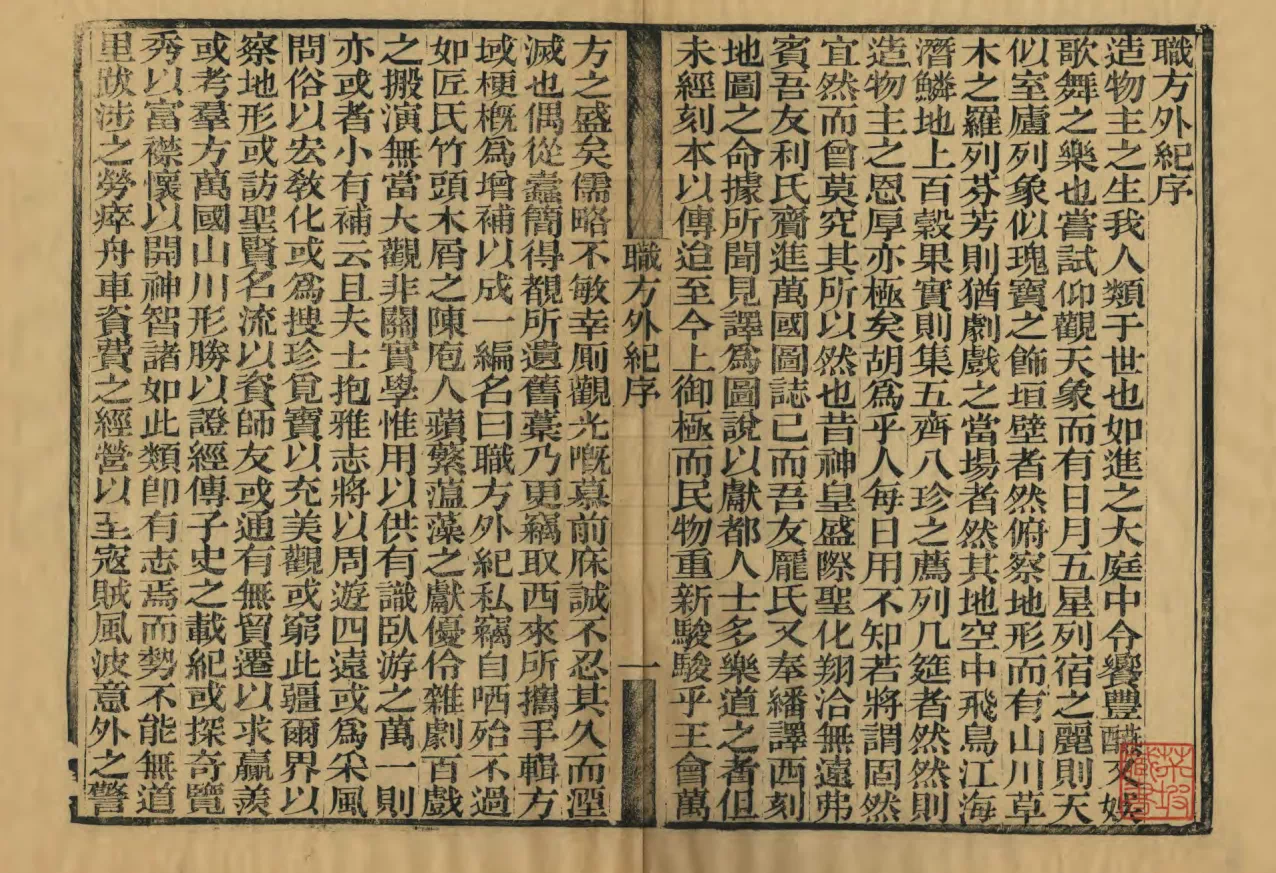 職方外紀序
造物主之生我人類于世也如進之大庭中令饗豐醴又娱
歌舞之樂也嘗試仰觀天象而有日月五星列宿之麗則天
似室廬列象似瑰寶之飾垣壁者然俯察地形而有山川草
木之羅列芬芳則猶劇戲之當場者然其地空中飛鳥江海
潛鱗地上百穀果實則集五齊八珍之薦列几筵者然然則
造物主之恩厚亦極矣胡爲乎人每日用不知若將謂固然
宜然而曾莫究其所以然也昔神皇盛際聖化翔洽無遠弗
賓吾友利氏齎進萬國圖誌已而吾友龐氏又奉繙譯西刻
地圖之命據所聞見譯爲圖說以獻都人士多樂道之者但
未經刻本以傳迨至今上御極而民物重新駸駸乎王會萬
職方外紀序
一
方之盛矣儒略不敏幸厠觀光慨慕前庥誠不忍其久而湮
滅也偶從蠧簡得覩所遺舊藁乃更竊取西來所攜手輯方
域梗槪爲增補以成一編名曰職方外紀私竊自哂殆不過
如匠氏竹頭木屑之陳庖人蘋蘩薀藻之獻優伶雜劇百戲
之搬演無當大觀非關實學惟用以供有識臥游之萬一則
亦或者小有補云且夫士抱雅志將以周遊四遠或爲采風
問俗以宏敎化或爲搜珍覓寶以充美觀或窮此疆爾界以
察地形或訪聖賢名流以資師友或通有無貿遷以求贏羨
或考羣方萬國山川形勝以證經傳子史之載紀或探奇覽
秀以富襟懷以開神智諸如此類卽有志焉而勢不能無道
里跋涉之勞瘁舟車資費之經營以至寇賊風波意外之警